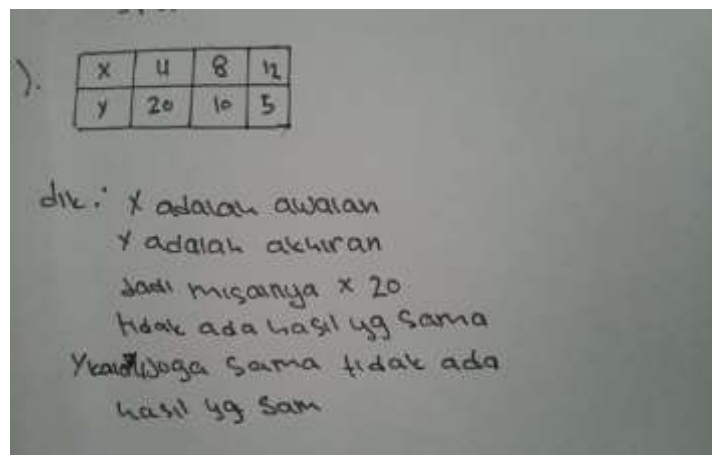 ).
x 4 8 12
y 20 10 5
dik : x adalah awalan
y adalah akhiran
Jadi misalnya x 20
tidak ada hasil yg sama
juga sama tidak ada
hasil yg sam